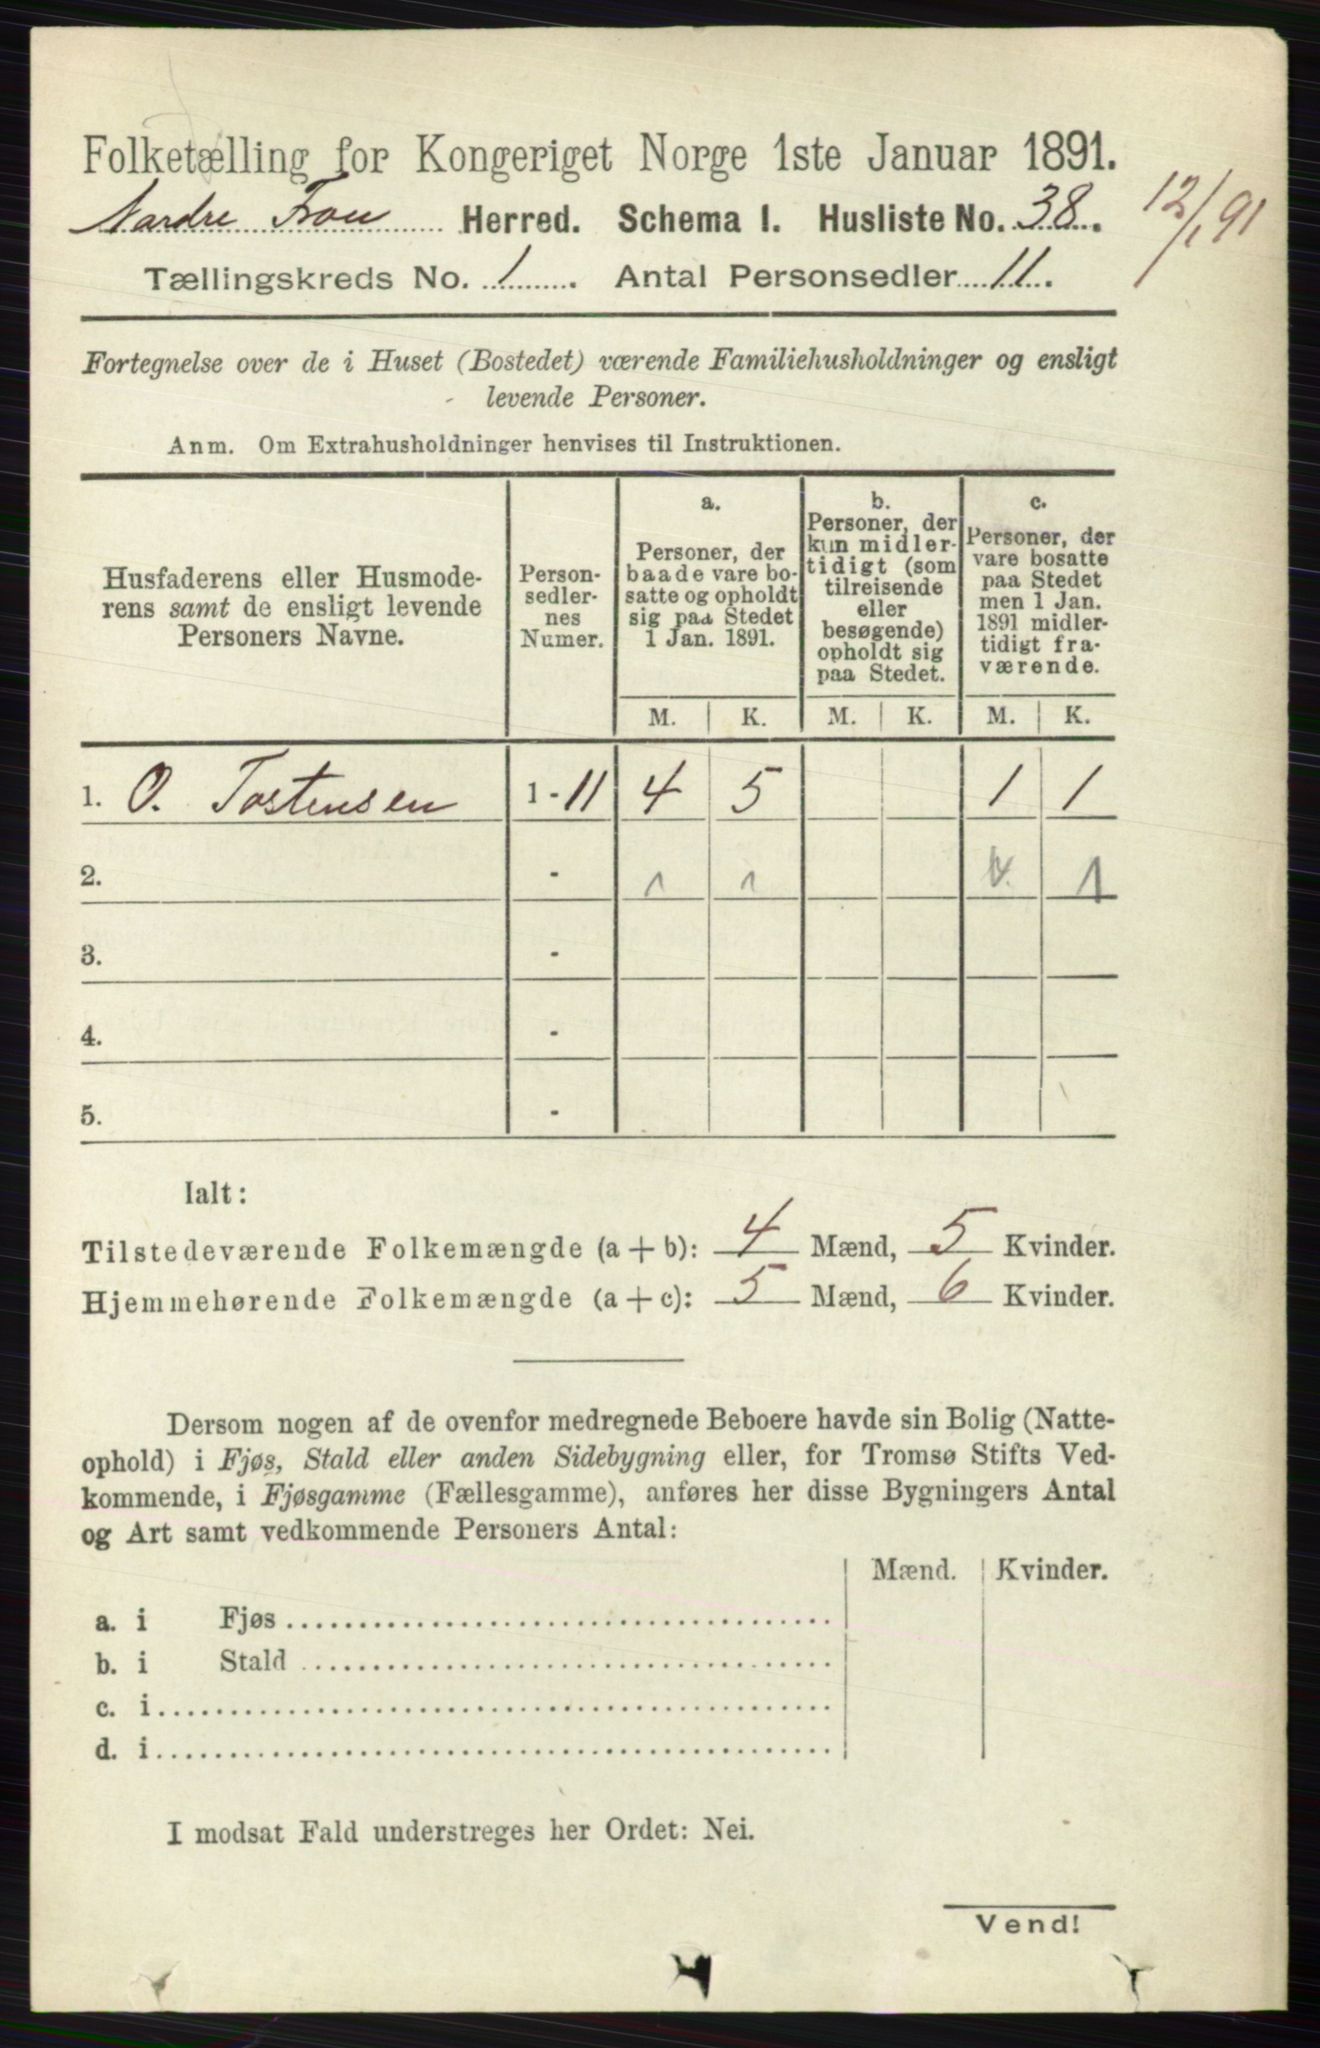 Folketælling for Kongeriget Norge 1ste Januar 1891.
Nordre Fron Herred. Schema I. Husliste No. 38.
12/1 91
Tællingskreds No. 1. Antal Personsedler 11.
Fortegnelse over de i Huset (Bostedet) værende Familiehusholdninger og ensligt
levende Personer.
Anm. Om Extrahusholdninger henvises til Instruktionen.
Husfaderens eller Husmode-
rens samt de ensligt levende
Personers Navne.
Person-
sedler-
nes
Numer.
a.
Personer, der
baade vare bo-
satte og opholdt
sig paa Stedet
1 Jan. 1891.
b.
Personer, der
kun midler-
tidigt (som
tilreisende
eller
besøgende)
opholdt sig
paa Stedet.
c.
Personer, der
vare bosatte
paa Stedet
men 1 Jan.
1891 midler-
tidigt fra-
værende.
M. K. M. K. M. K.
1. O. Tostensen 1 - 11 4 5 1 1
2. - 1 1 1
3. -
4. -
5. -
Ialt:
Tilstedeværende Folkemængde (a + b): 4 Mænd, 5 Kvinder.
Hjemmehørende Folkemængde (a + c): 5 Mænd, 6 Kvinder.
Dersom nogen af de ovenfor medregnede Beboere havde sin Bolig (Natte-
ophold) i Fjøs, Stald eller anden Sidebygning eller, for Tromsø Stifts Ved-
kommende, i Fjøsgamme (Fællesgamme), anføres her disse Bygningers Antal
og Art samt vedkommende Personers Antal:
Mænd. Kvinder.
a. i Fjøs
b. i Stald
c. i
d. i
I modsat Fald understreges her Ordet: Nei.
Vend!